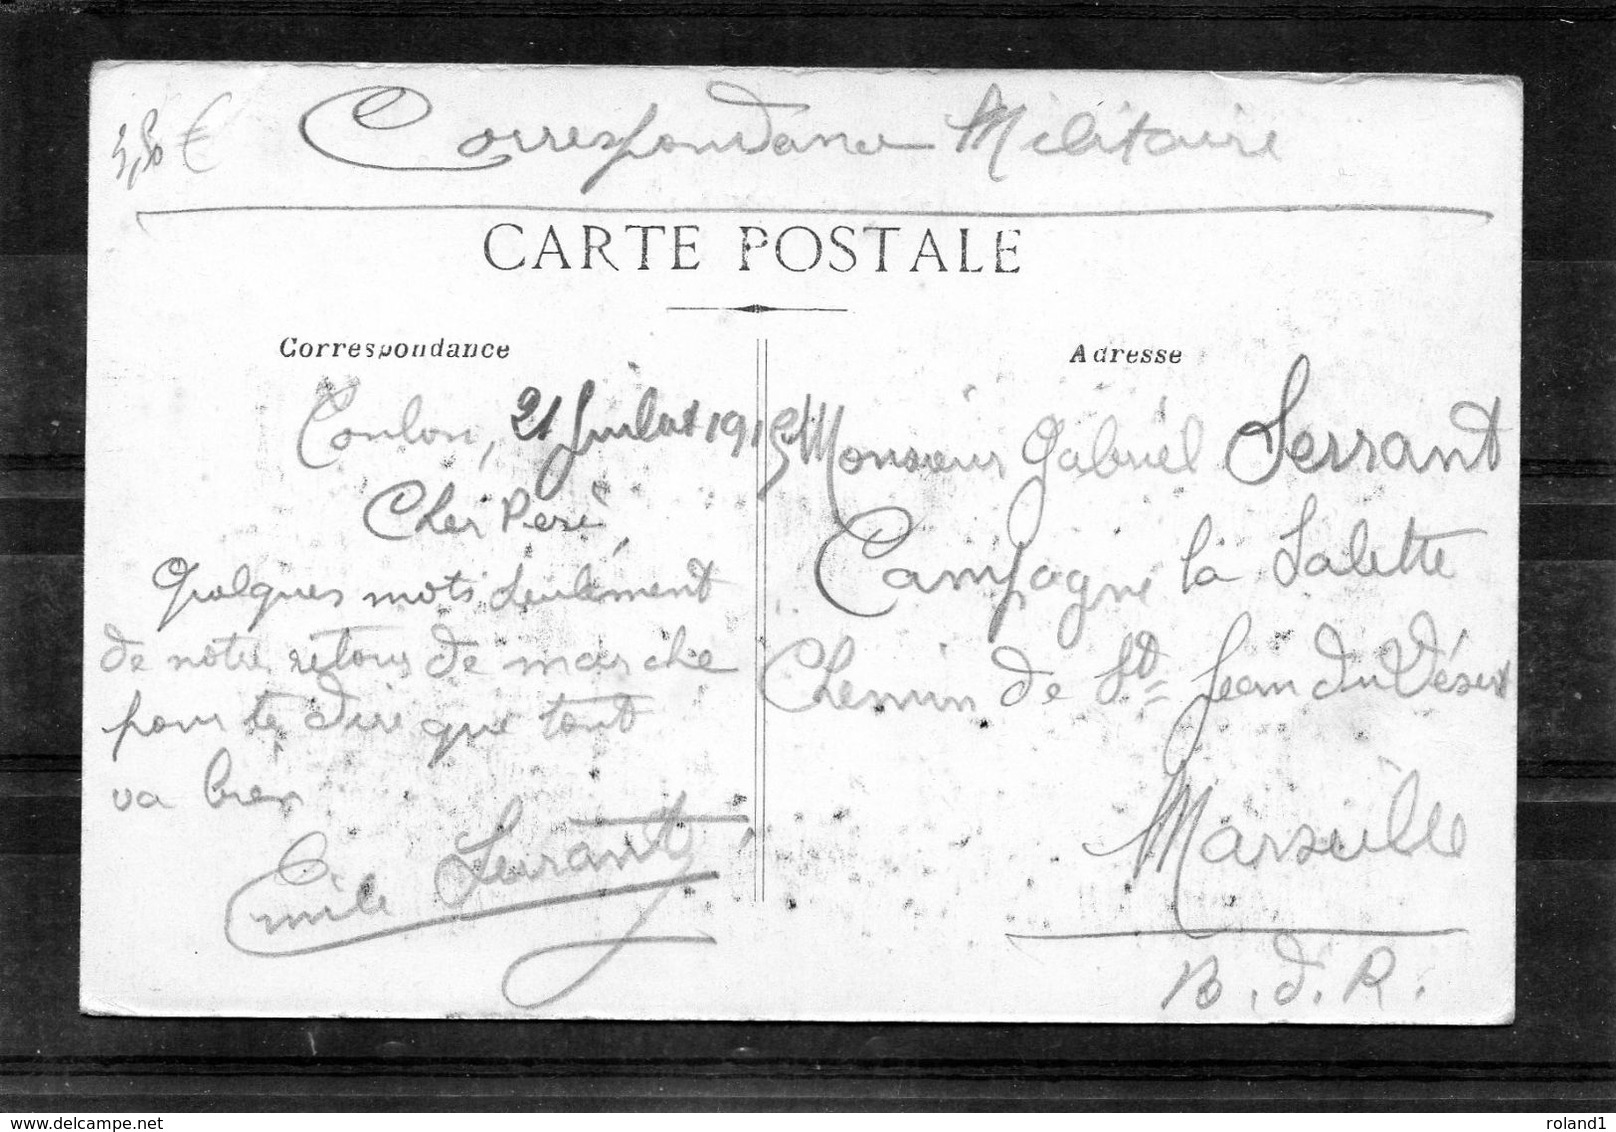 3,50 €
Correspondance Militaire
CARTE POSTALE
Correspondance
Toulon, 21 Juillet 1915
Cher Père,
Quelques mots seulement
de notre retour de marche
pour te dire que tout
va bien
Emile Serrant
Adresse
Monsieur Gabriel Serrant
Campagne la Salette
Chemin de St= Jean du Désert
Marseille
B. d. R.
© www.delcampe.net
roland1